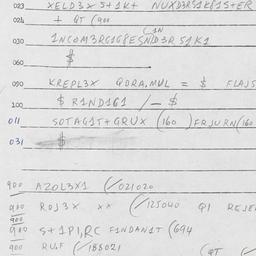 023 XELD3X S+1K+ NUXD3RS1K81S+ER
024 + QT (900
030 1NCOM3RG1G8ESN1D3R S1K1
060 $
090 KREPL3X QDRA,MUL = $ FLAJS
100 $ R1ND1G1 /-$
011 SOTAG1T+GRUX (160 )FRJURN(160
031 $
900 AZOL3X1 (/021020
900 ROJ3X XX (/125040 Q1 REJE
900
900 S+1P1,RC F1NDAN1T (694
900 RULF (/188021 (QT (/